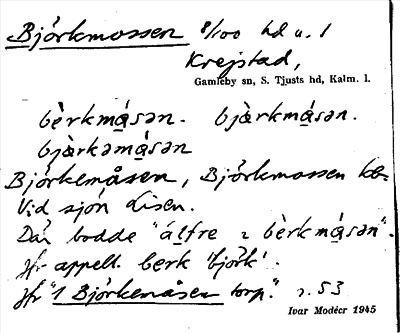 Björkmossen 8/100 hd u. l
Krejstad,
Gamleby sn, S. Tjusts hd, Kalm. l.
bèrkmásən. bjàrkmásən.
bjàrkəmásən
Björkemåsen, Björkmossen
Vid sjön Lisen.
Där bodde "álfre i bèrkmásən".
Jfr appell. berk 'björk'.
Jfr "1 Björkemåsen torp." s. 53
Ivar Modéer 1945